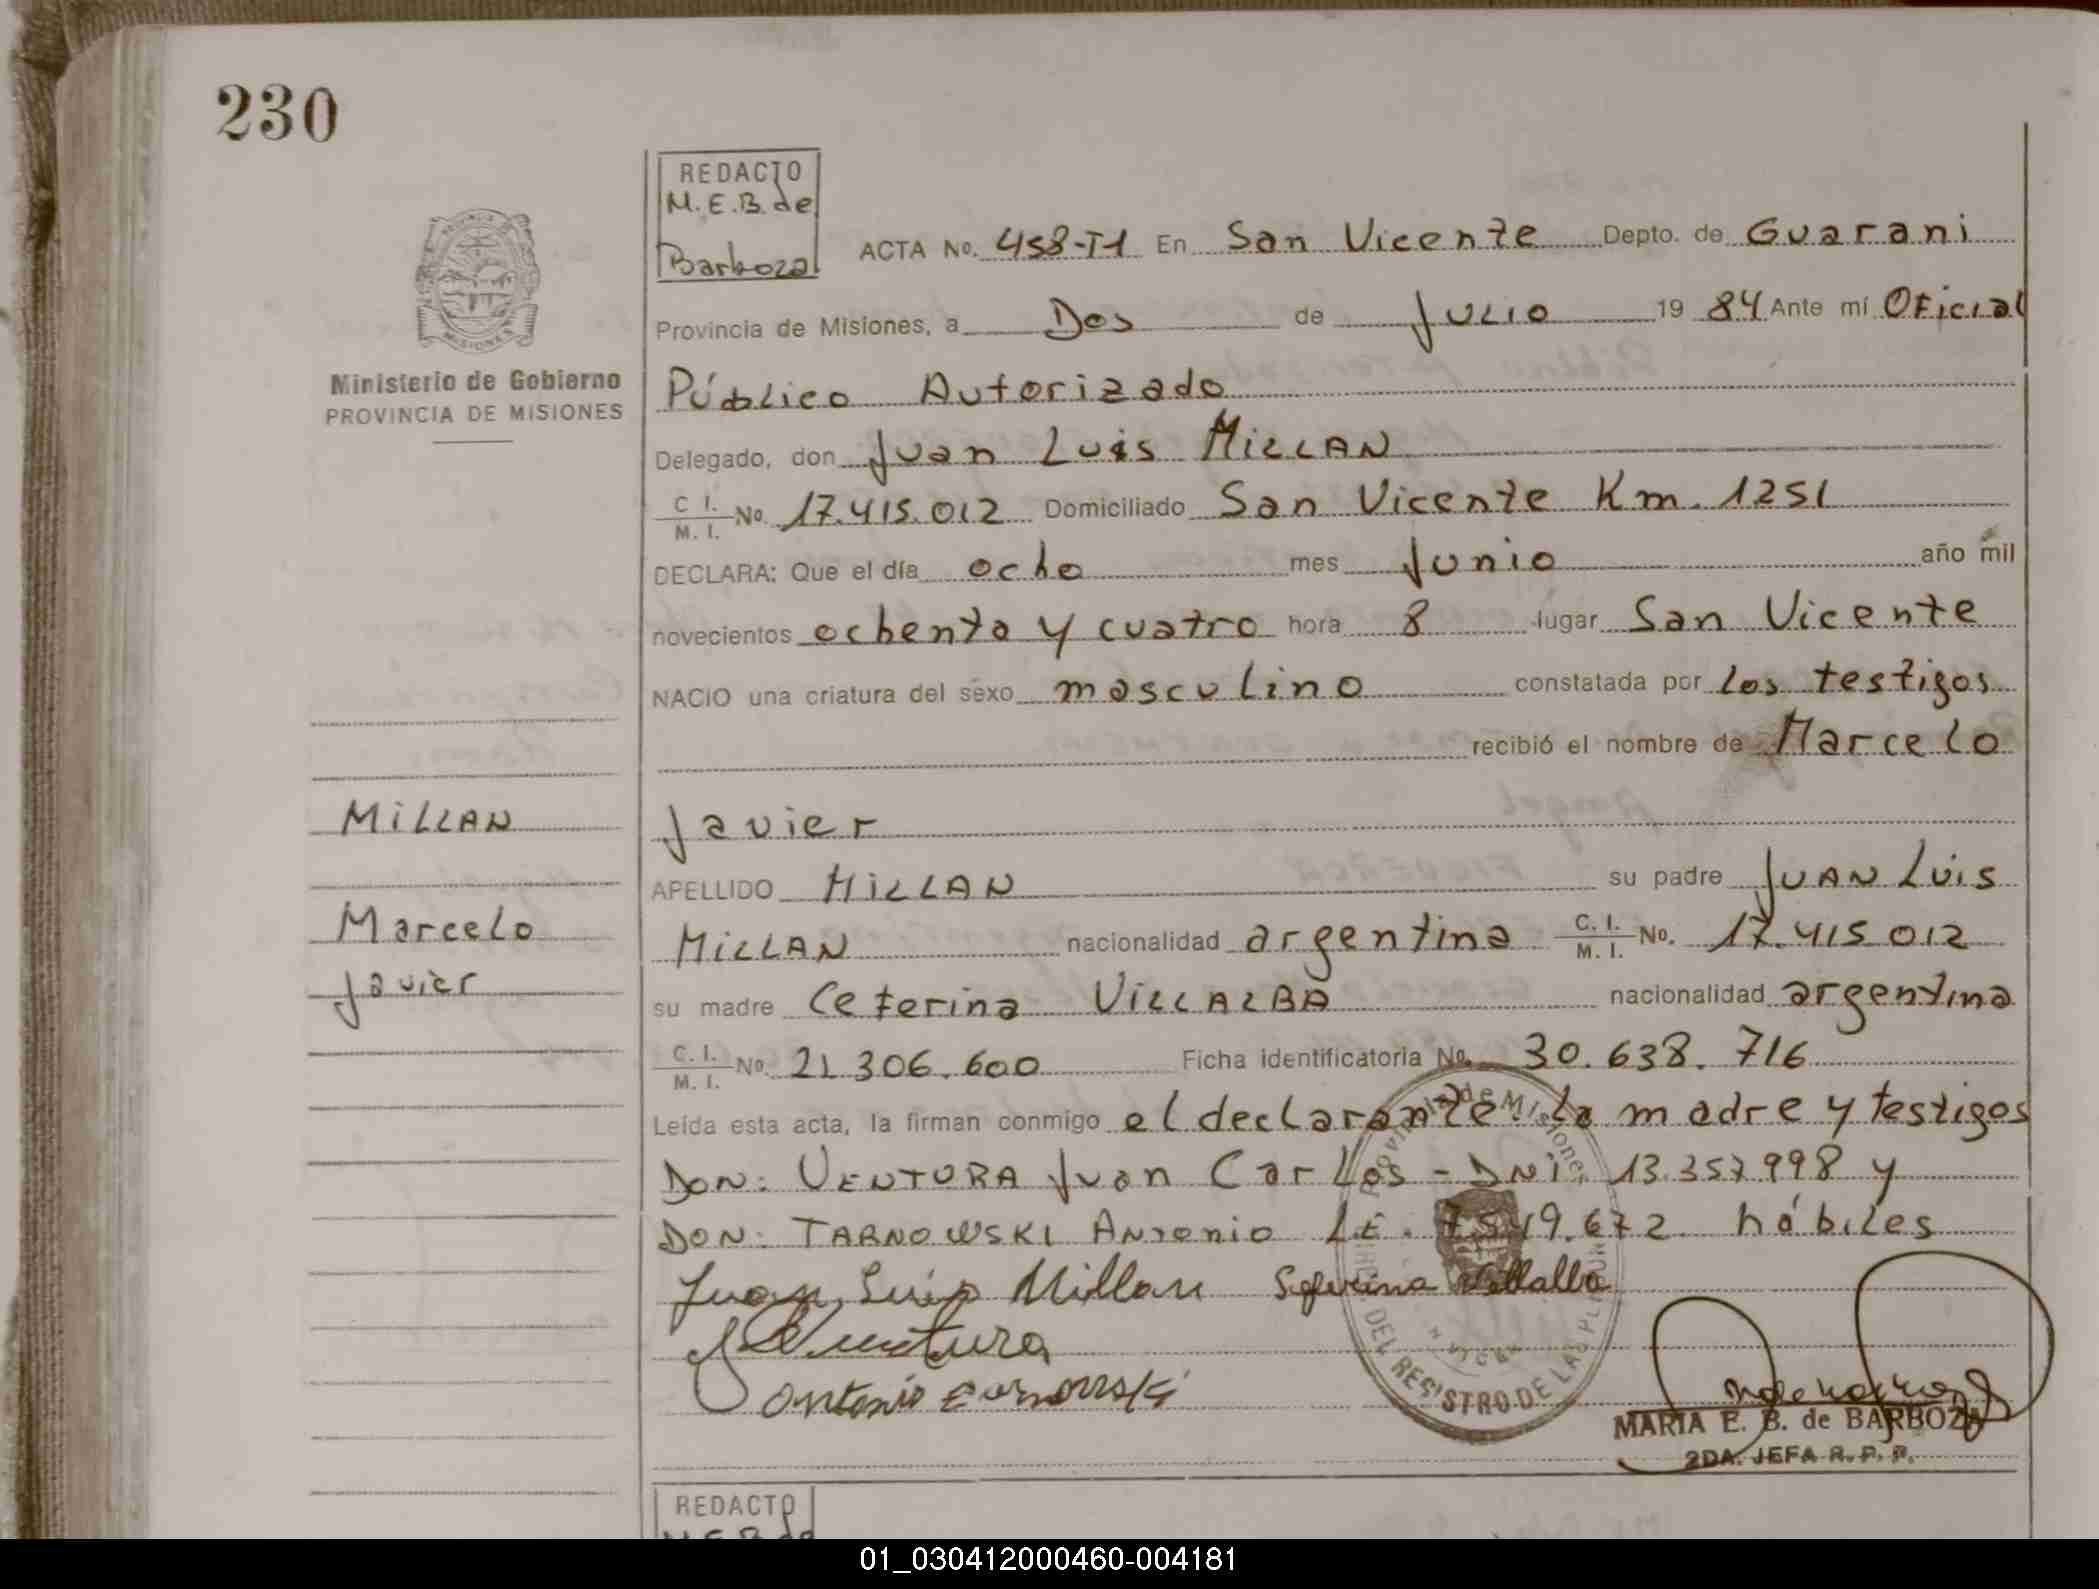 230
REDACTO
M.E.B. de
Barboza
ACTA No. 458-T1 En San Vicente Depto. de Guarani
Provincia de Misiones, a Dos de Julio 1984 Ante mí Oficial
Público Autorizado
Delegado, don Juan Luis MILLAN
C. I. / M. I. No. 17.415.012 Domiciliado San Vicente Km. 1251
DECLARA: Que el día ocho mes Junio año mil
novecientos ochenta y cuatro hora 8 lugar San Vicente
NACIO una criatura del sexo masculino constatada por los testigos
recibió el nombre de Marcelo
Javier
APELLIDO MILLAN su padre JUAN Luis
MILLAN nacionalidad argentina C. I. / M. I. No. 17.415.012
su madre Ceferina VILLALBA nacionalidad argentina
C. I. / M. I. No. 21.306.600 Ficha identificatoria No. 30.638.716
Leída esta acta, la firman conmigo el declarante. La madre y testigos
DON: VENTURA Juan Carlos - DNI. 13.357.998 y
DON: TARNOWSKI Antonio L.E. 7.549.672 hábiles
Juan Luis Millan Seferina Villalba
Ventura
Antonio
MARIA E. B. de BARBOZA
2DA. JEFA R. P. P.
Ministerio de Gobierno
PROVINCIA DE MISIONES
MILLAN
Marcelo
Javier
PROVINCIA DE MISIONES
Provincia de Misiones
DEL REGISTRO DE LAS
REDACTO
M.E.B. de
01_030412000460-004181